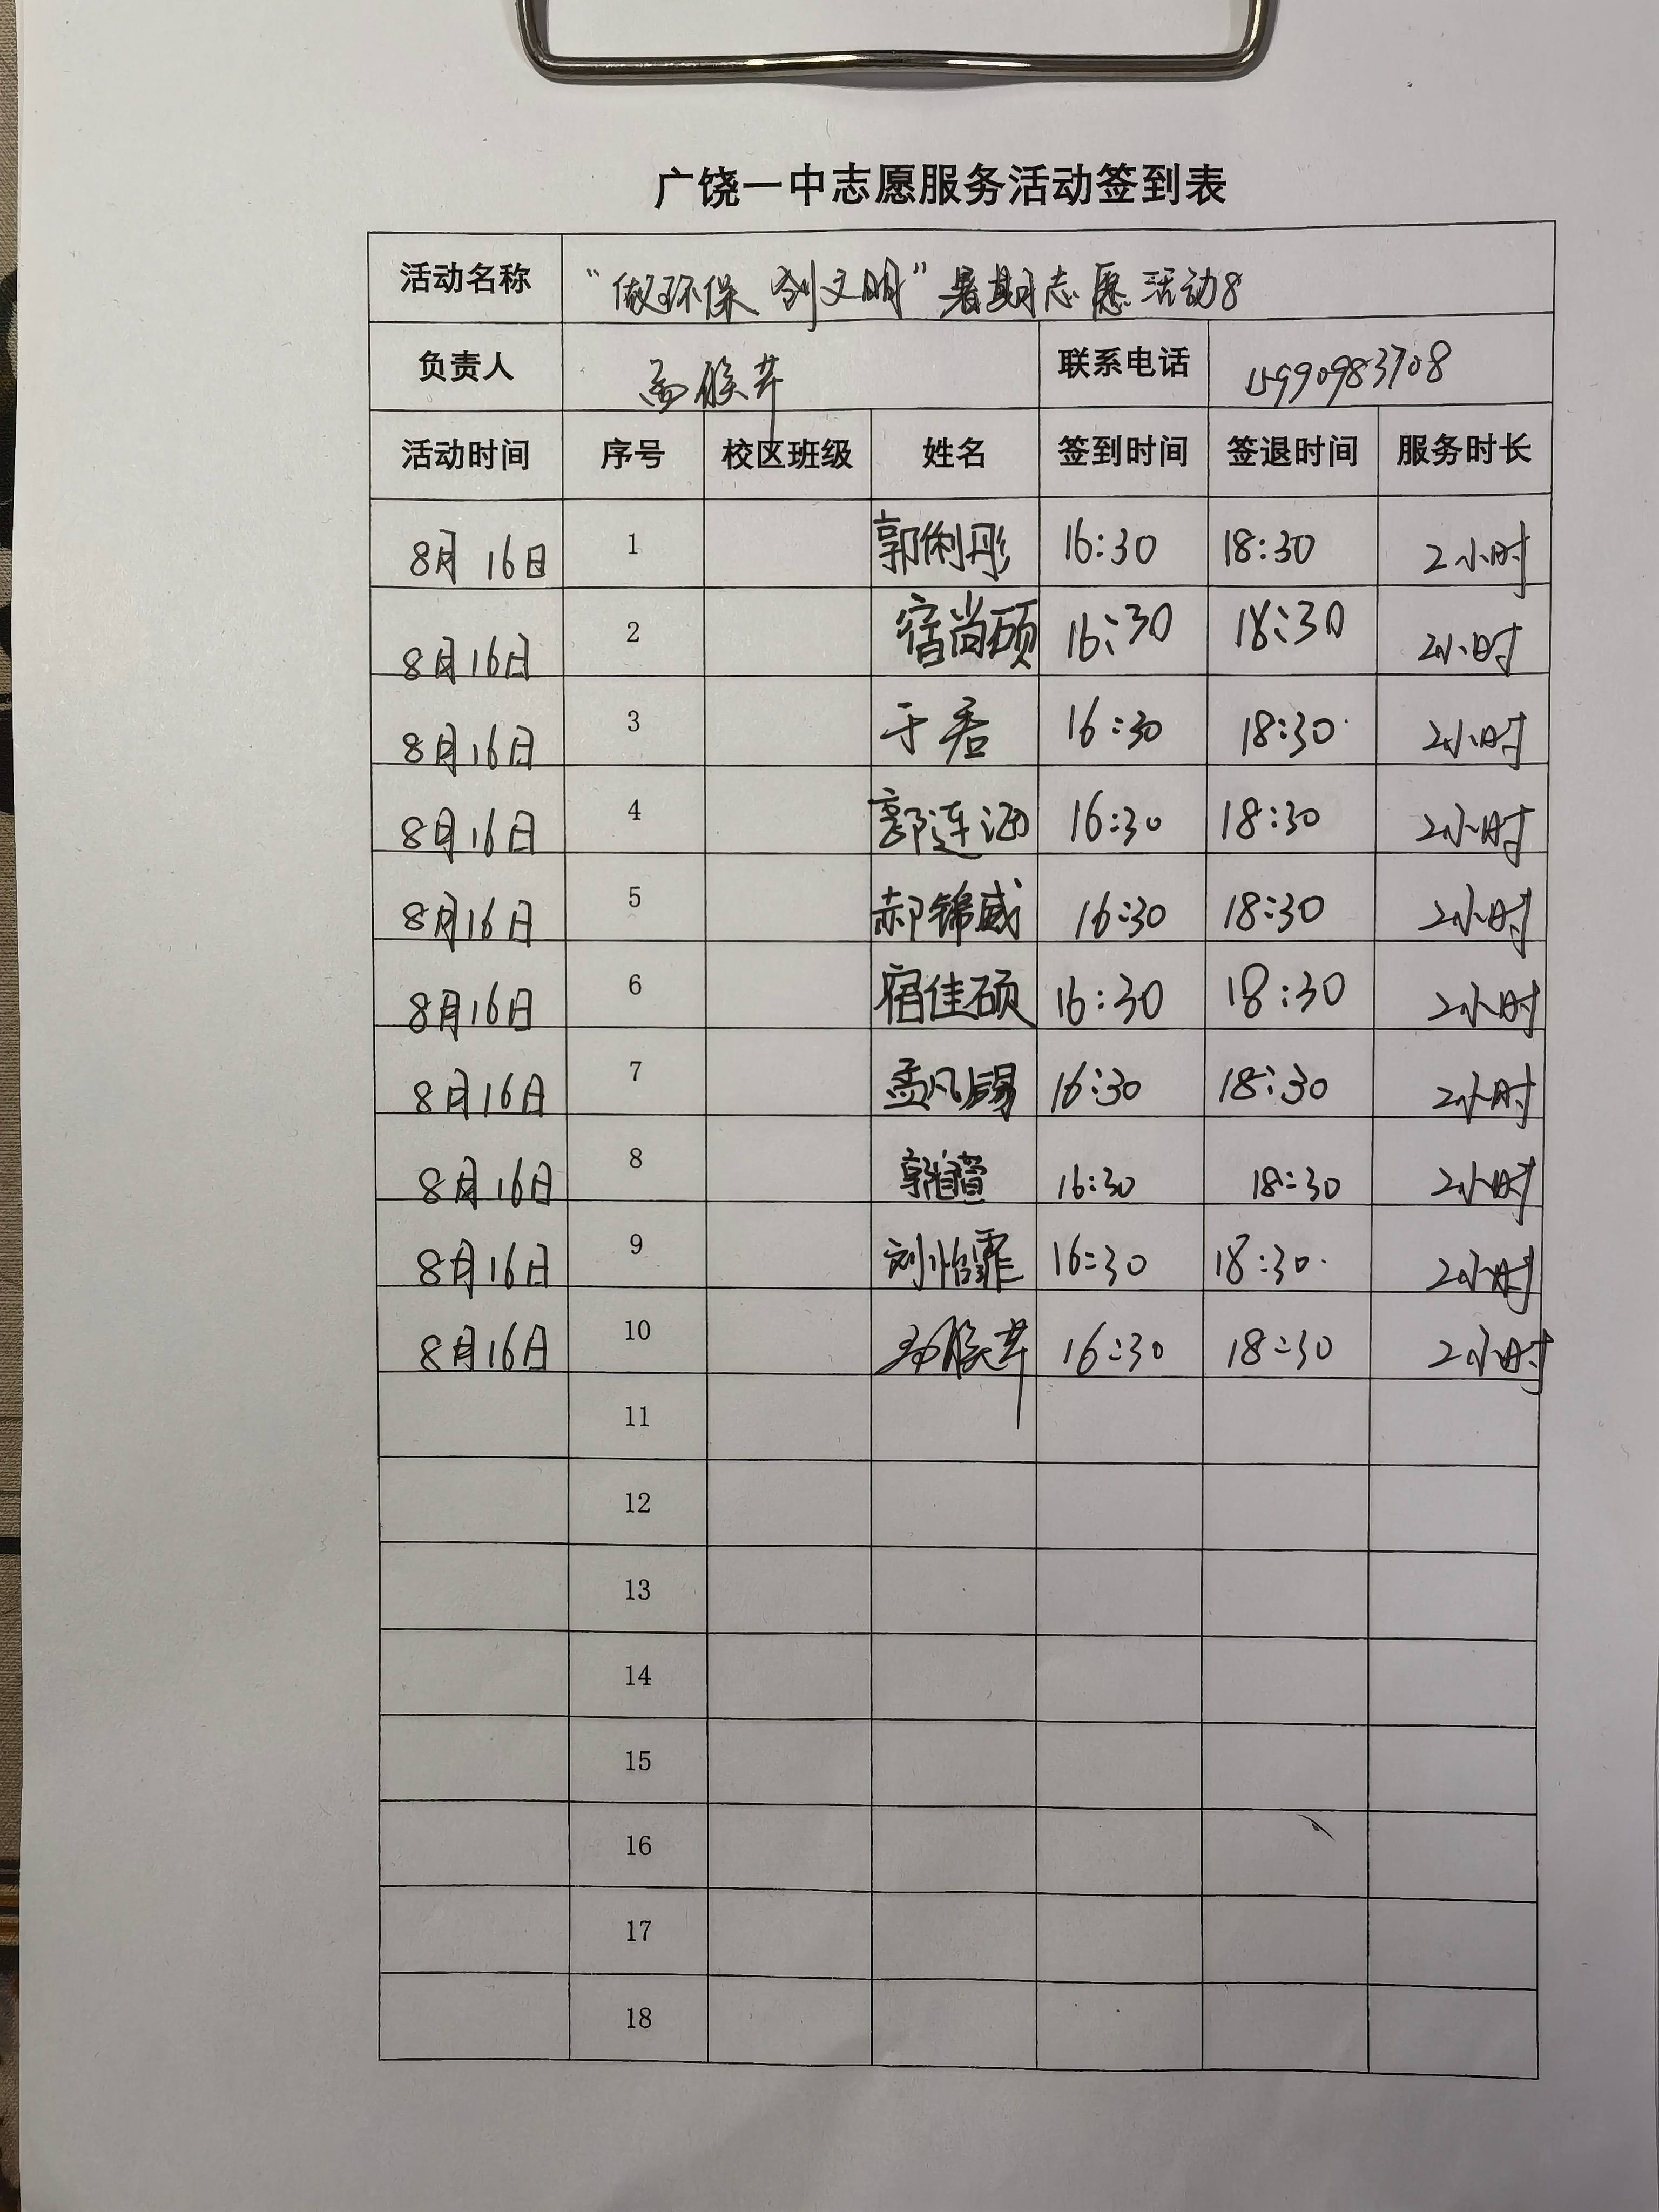 广饶一中志愿服务活动签到表
活动名称 “做环保 创文明”暑期志愿活动8
负责人 联系电话 15990983708
活动时间 序号 校区班级 姓名 签到时间 签退时间 服务时长
8月16日 1 郭俐彤 16:30 18:30 2小时
8月16日 2 宿尚硕 16:30 18:30 2小时
8月16日 3 于君 16:30 18:30 2小时
8月16日 4 郭连涵 16:30 18:30 2小时
8月16日 5 郝锦威 16:30 18:30 2小时
8月16日 6 宿佳硕 16:30 18:30 2小时
8月16日 7 孟凡锡 16:30 18:30 2小时
8月16日 8 16:30 18:30 2小时
8月16日 9 刘怡霏 16:30 18:30 2小时
8月16日 10 16:30 18:30 2小时
11
12
13
14
15
16
17
18